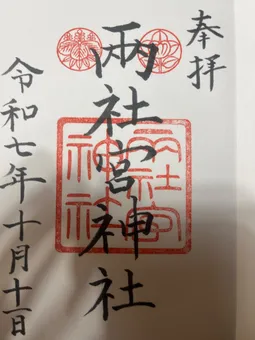 奉拝
両社宮神社
両社宮神社
令和七年十月十一日